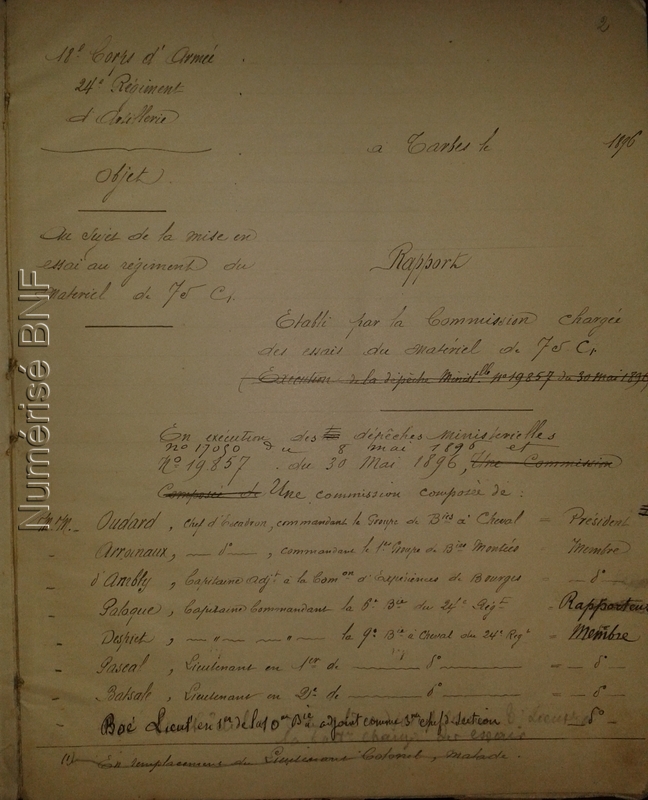 2
18e Corps d'Armée
24e Régiment
d'Artillerie
à Tarbes le 1896
Objet
Au sujet de la mise en
essai au régiment du
Matériel de 75 Cr.
Rapport
Etabli par la Commission chargée
des essais du Matériel de 75 Cr
Execution de la dépêche Minist.lle No 19857 du 30 mai 1896
En exécution des dépêches Ministérielles
no 17050 du 8 mai 1896 et
No 19857 du 30 Mai 1896, Une Commission
Composée de Une commission composée de :
M.M. Oudard, Chef d'Escadron, commandant le Groupe de Bies à Cheval = Président
- Arrounaux, — do —, commandant le 1er Groupe de Bies Montées - Membre
- d'Anebly, Capitaine Adjt à la Comon d'Expériences de Bourges = - do -
- Palaque, Capitaine Commandant la 5e Bie du 24e Régt = Rapporteur
- Despret, — " — " — la 9e Bie à Cheval du 24e Regt = Membre
- Pascal, Lieutenant en 1er de — do — = - do -
- Batsale, Lieutenant en 2e de — do — = - do -
- Boé Lieut en 1er de la 10me Bie adjoint comme chef de section - do -
(1) En remplacement du Lieutenant Colonel, Malade.
Numérisé BNF